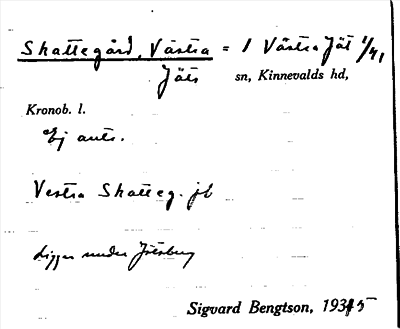 Skattegård, Västra = 1 Västra Jät 1/4 1
Jäts sn, Kinnevalds hd,
Kronob. l.
Ej ants.
Vestra Skatteg. jb
Ligger under Jätsberg
Sigvard Bengtson, 1935